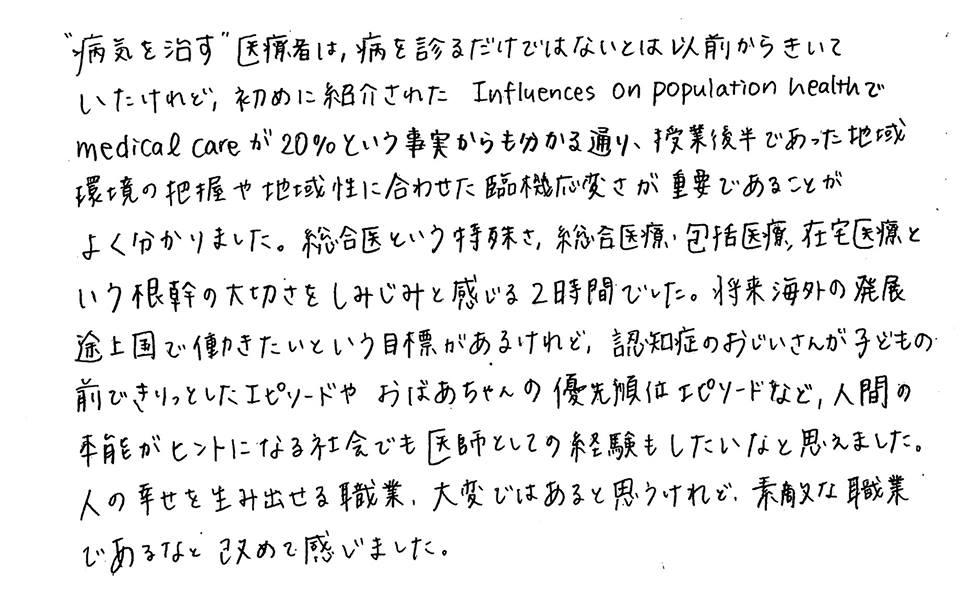 "病気を治す"医療者は,病を診るだけではないとは以前からきいて
いたけれど,初めに紹介された Influences on population healthで
medical careが20%という事実からも分かる通り、授業後半であった地域
環境の把握や地域性に合わせた臨機応変さが重要であることが
よく分かりました。総合医という特殊さ,総合医療・包括医療,在宅医療と
いう根幹の大切さをしみじみと感じる2時間でした。将来海外の発展
途上国で働きたいという目標があるけれど,認知症のおじいさんが子どもの
前できりっとしたエピソードやおばあちゃんの優先順位エピソードなど,人間の
本能がヒントになる社会でも医師としての経験もしたいなと思えました。
人の幸せを生み出せる職業、大変ではあると思うけれど、素敵な職業
であるなと改めて感じました。